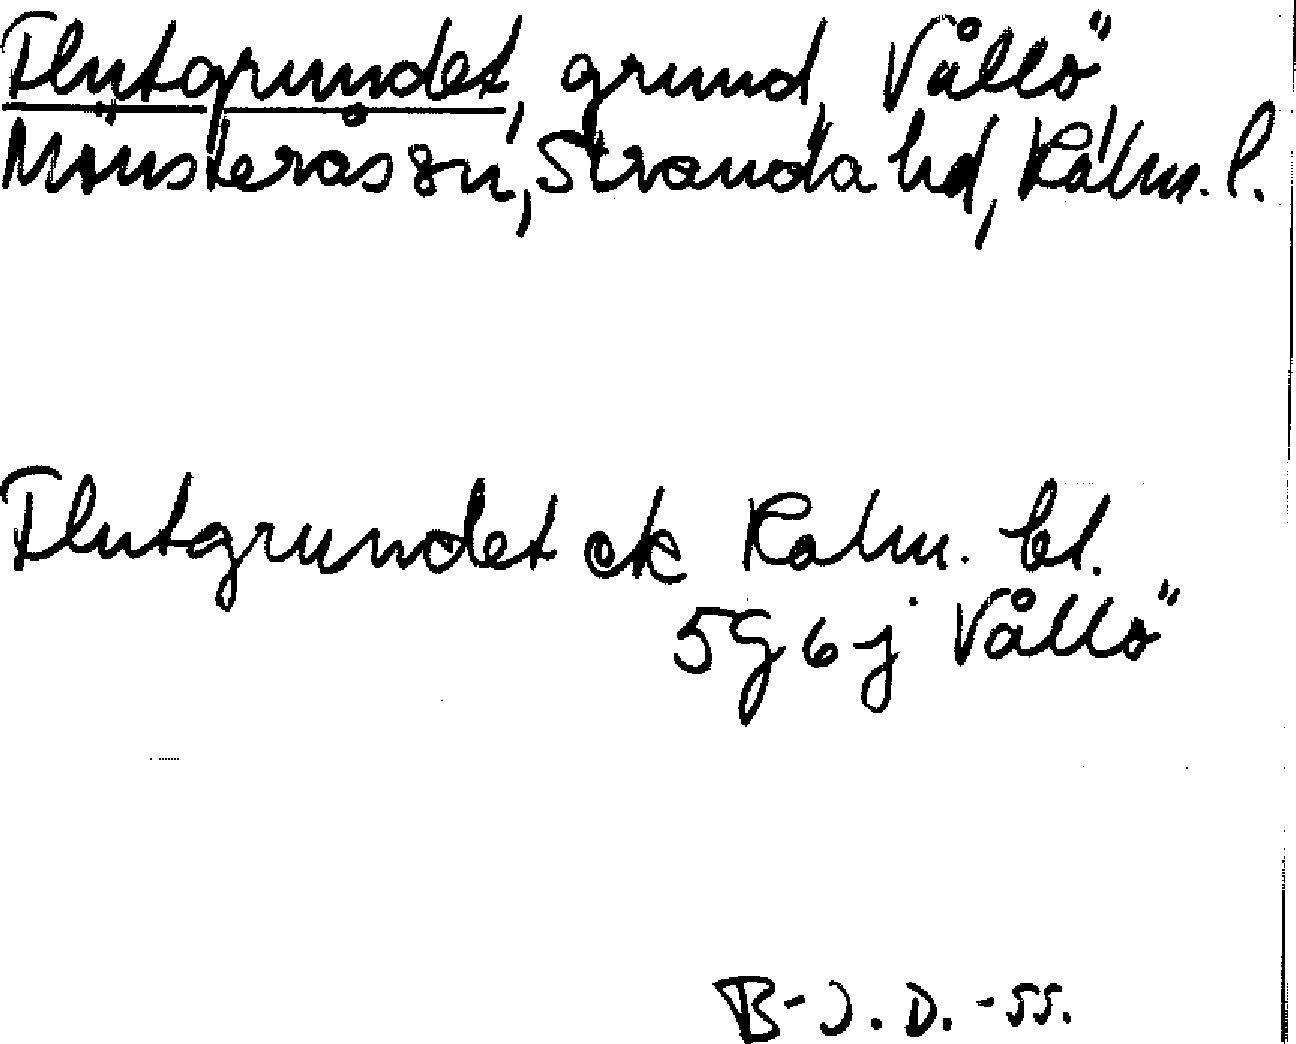 Flutgrundet, grund, Vållö
Mönsterås sn, Stranda hd, Kalm. l.
Flutgrundet ek Kalm. bl.
5G6j Vållö
B-J. D. -55.